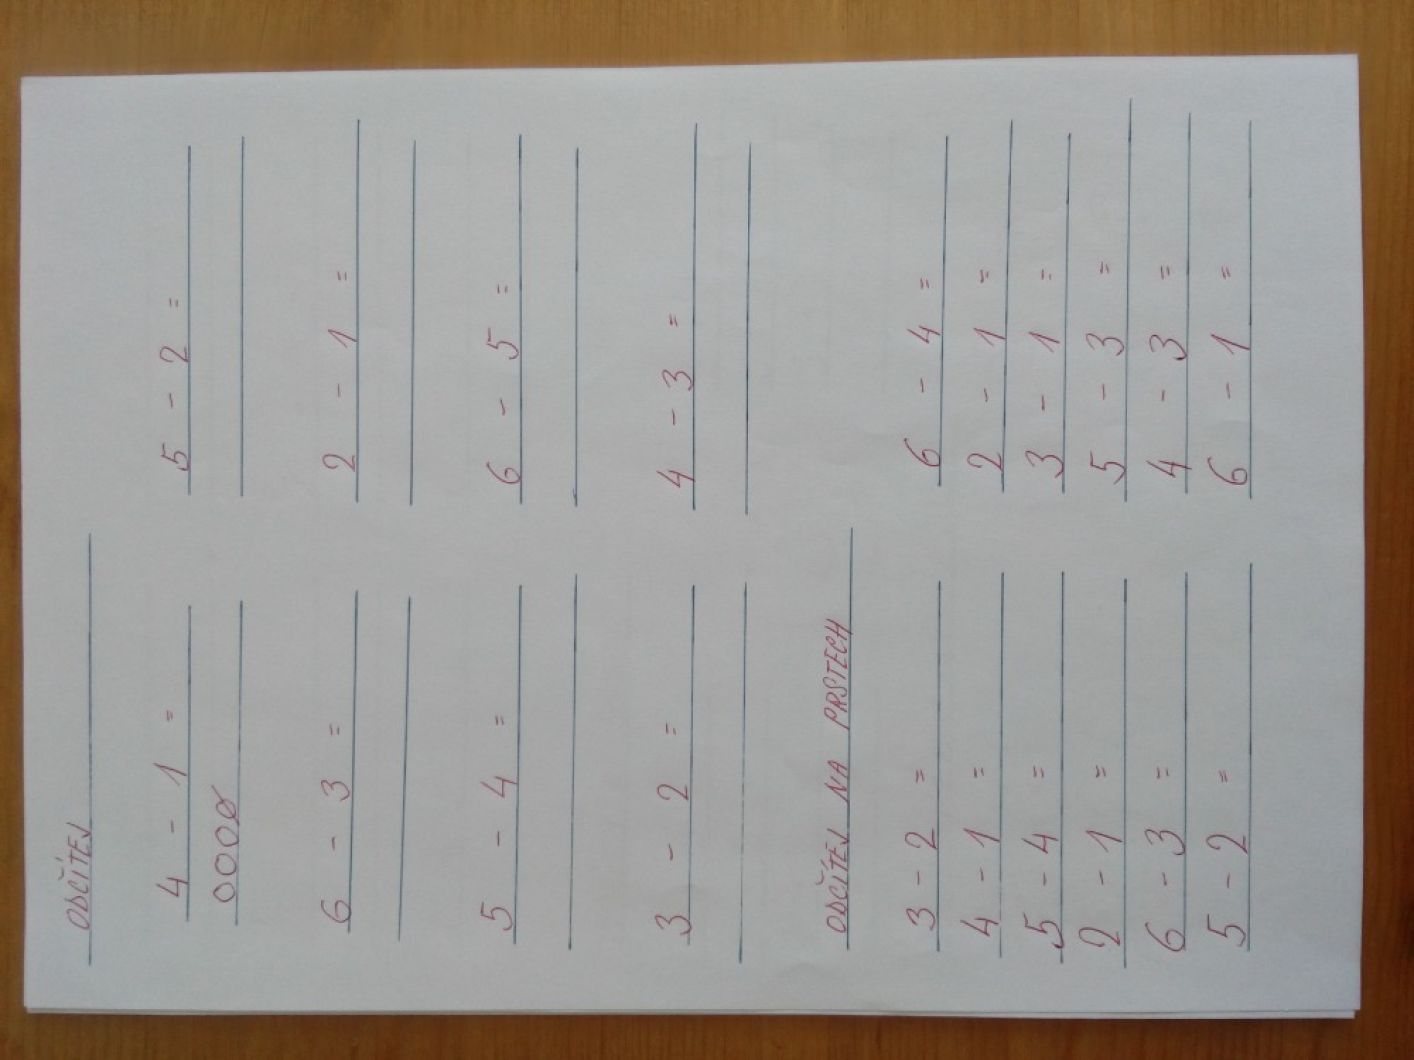 ODČÍTEJ
4 - 1 = 5 - 2 =
000Ø
6 - 3 = 2 - 1 =
5 - 4 = 6 - 5 =
3 - 2 = 4 - 3 =
ODČÍTEJ NA PRSTECH
3 - 2 = 6 - 4 =
4 - 1 = 2 - 1 =
5 - 4 = 3 - 1 =
2 - 1 = 5 - 3 =
6 - 3 = 4 - 3 =
5 - 2 = 6 - 1 =